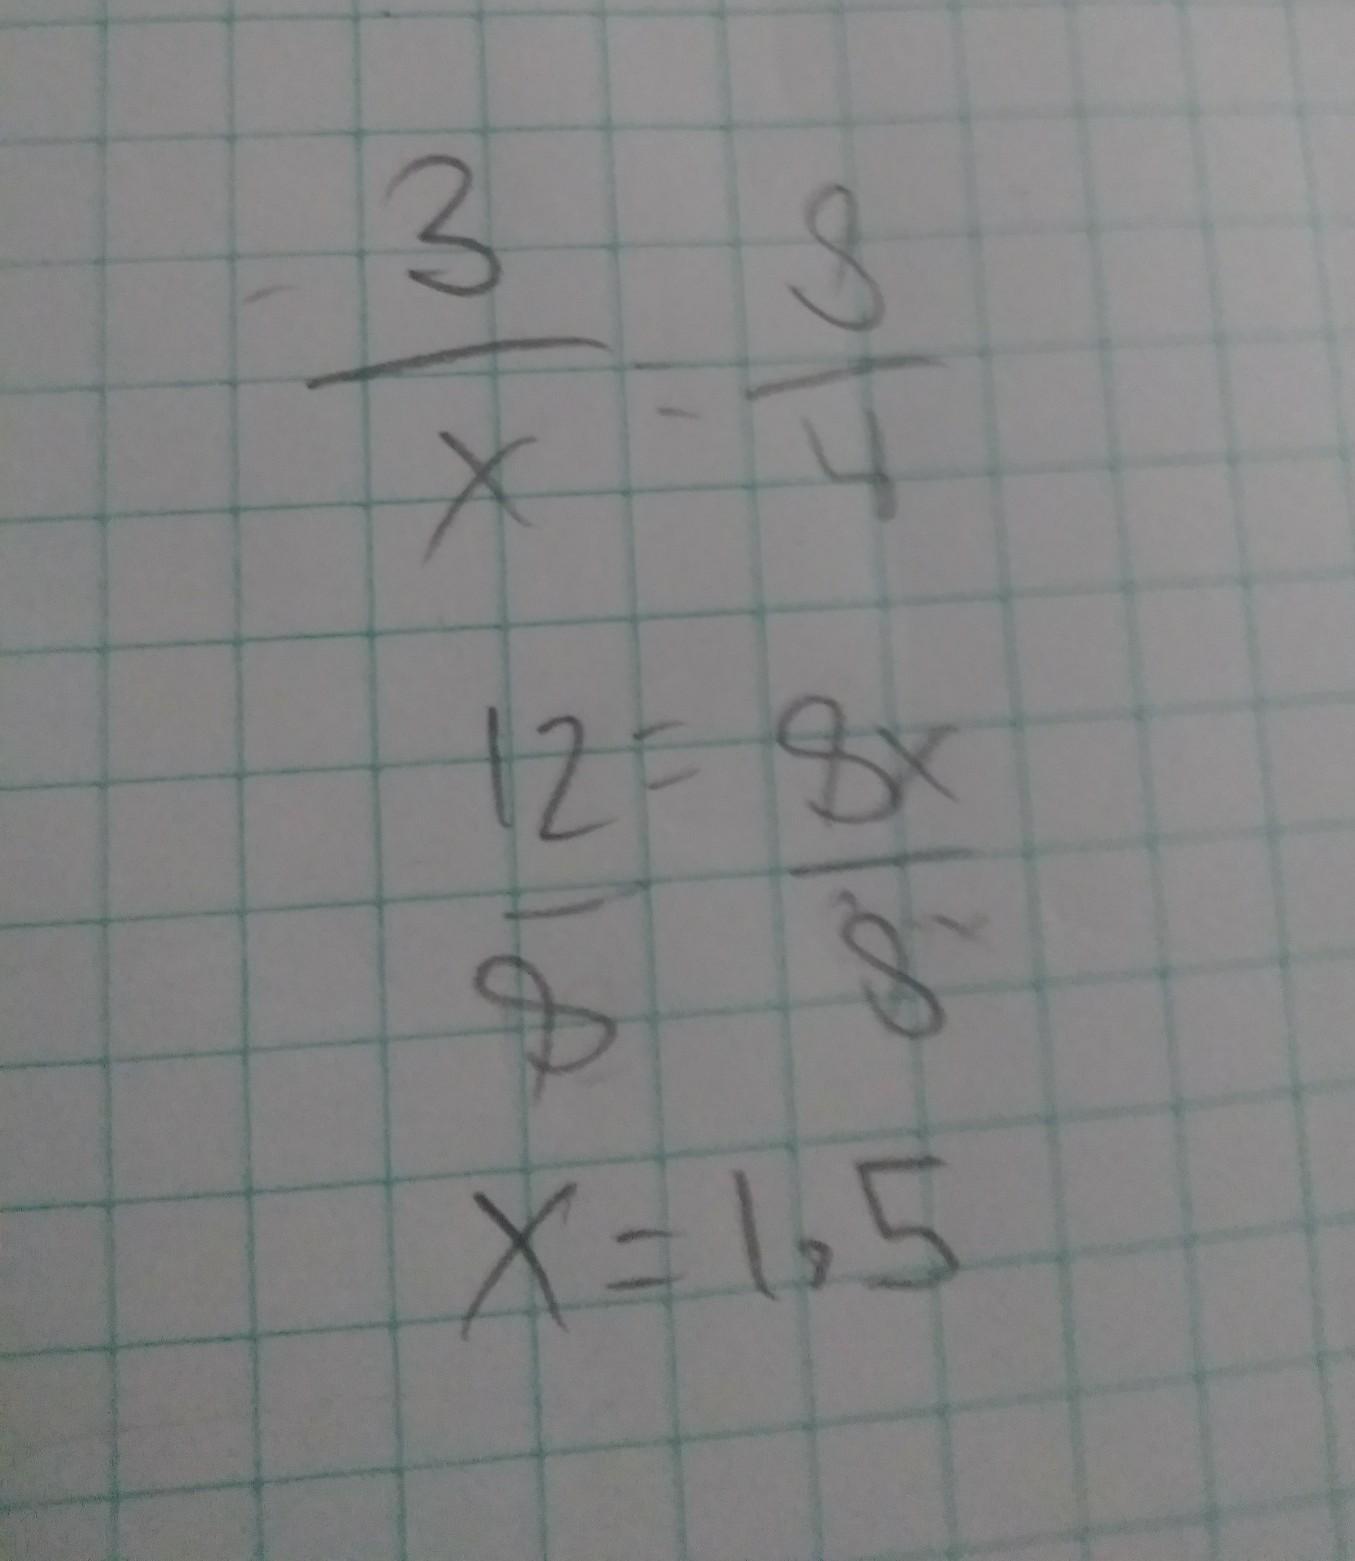 - 3/x = 8/4
12/8 = 8x/8
x = 1,5